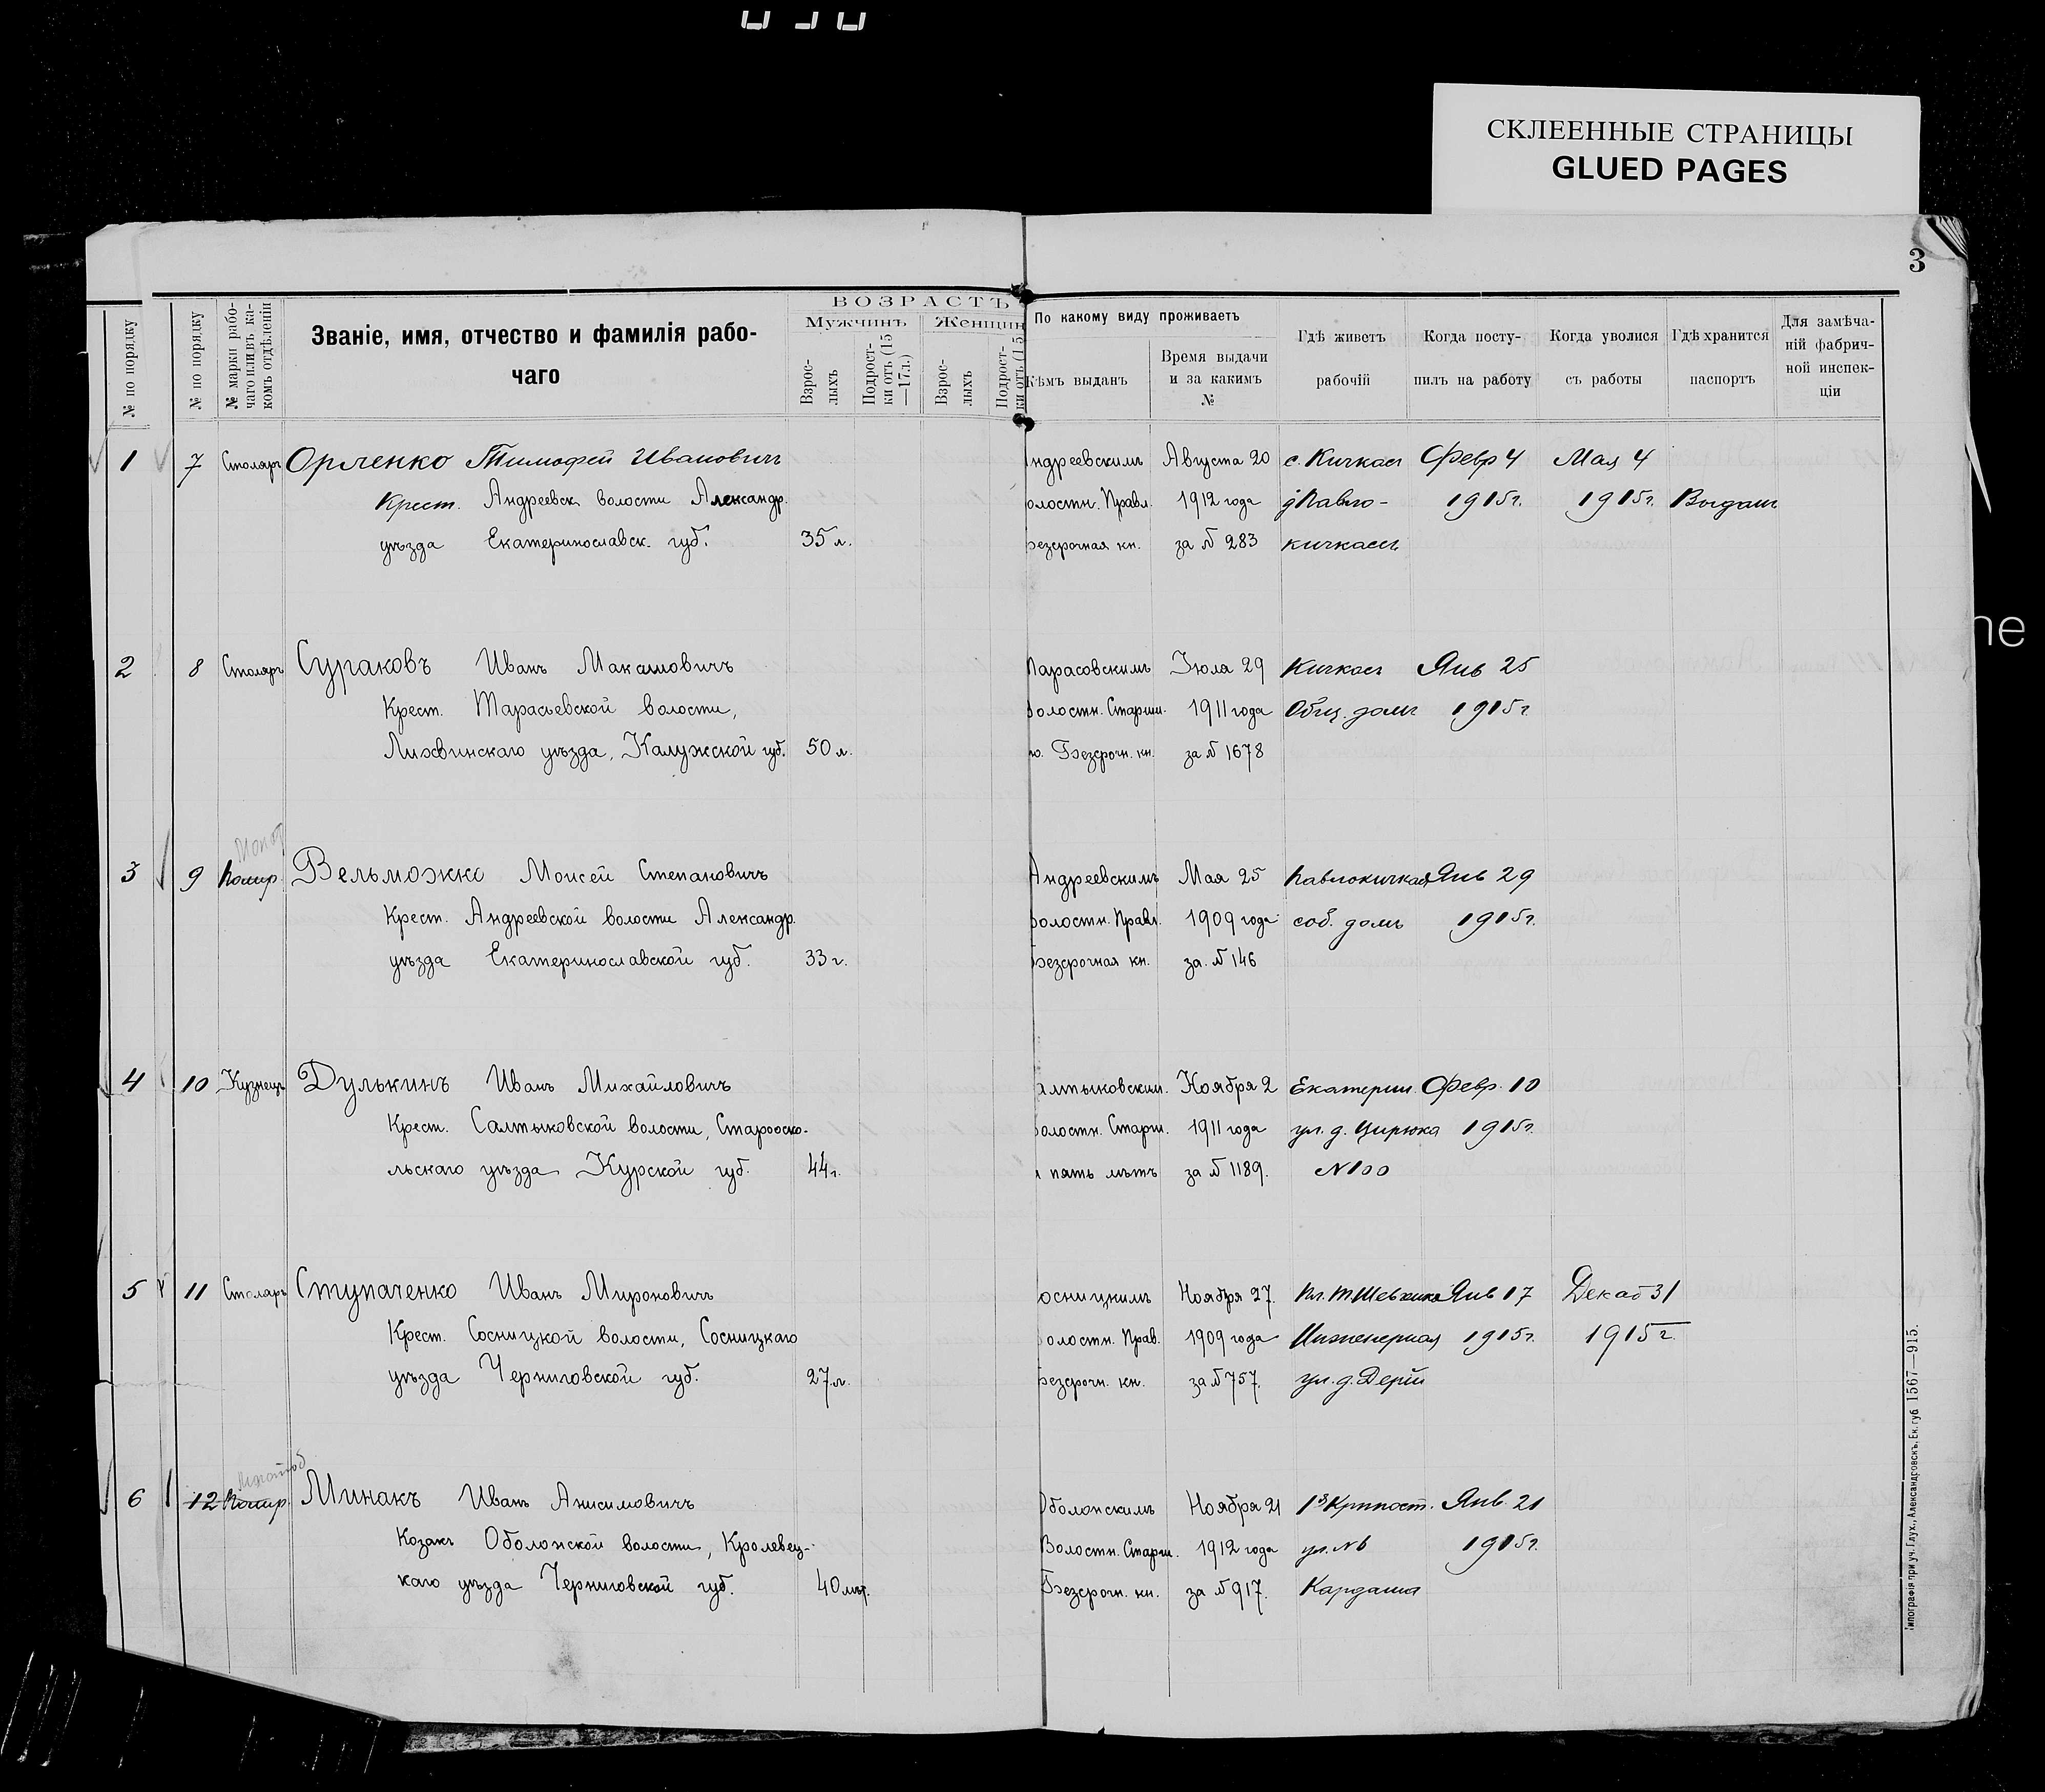 СКЛЕЕННЫЕ СТРАНИЦЫ
GLUED PAGES
3
№ по порядку
№ по порядку
№ марки рабо-
чаго или въ ка-
комъ отдѣленіи
Званіе, имя, отчество и фамилія рабо-
чаго
ВОЗРАСТЪ
Мужчинъ
Женщин
Взрос-
лыхъ
Подрост-
ки отъ (15
—17 л.)
Взрос-
лыхъ
Подрост-
ки отъ (15
По какому виду проживаетъ
Кѣмъ выданъ
Время выдачи
и за какимъ
№
Гдѣ живетъ
рабочій
Когда посту-
пилъ на работу
Когда уволися
съ работы
Гдѣ хранится
паспортъ
Для замѣча-
ній фабрич-
ной инспек-
ціи
1 7 Столяръ Орленко Тимофей Ивановичъ ндреевскимъ Августа 20 с. Кичкас Февр 4 Мая 4
Крест. Андреевск волости Александр. олостн. Правл. 1912 года 1915г. 1915г. Выдан
уѣзда Екатеринославск. губ. 35 л. безсрочная кн. за № 283 кичкасъ
2 8 Столяръ Сураковъ Иванъ Максимовичъ арасовскимъ Іюля 29 Кичкас Янв 25
Крест. Тарасьевской волости, волостн. Старши. 1911 года Общ. домъ 1915г.
Лихвинскаго уѣзда, Калужской губ. 50 л. Безсрочн. кн. за № 1678
3 9 Вельможко Моисей Степановичъ Андреевскимъ Мая 25 Павлокичкас Янв 29
Крест. Андреевской волости Александр. волостн. Правл. 1909 года соб. домъ 1915г.
уѣзда Екатеринославской губ. 33 г. Безсрочная кн. за № 146
4 10 Кузнецъ Дулькинъ Иванъ Михайловичъ алтыковским. Ноября 2 Екатерин. Февр. 10
Крест. Салтыковской волости, Староско- волостн. Старш. 1911 года ул. д. Цирюка 1915г.
льскаго уѣзда Курской губ. 44 г. пять лѣтъ за № 1189. №100
5 11 Столяръ Ступаченко Иванъ Мироновичъ осницкимъ Ноября 27. Янв 17 Декаб 31
Крест. Сосницкой волости, Сосницкаго волостн. Прав. 1909 года Инженерная 1915г. 1915г.
уѣзда Черниговской губ. 27 л. безсрочн. кн. за № 757. ул. д. Дерій
6 12 Минакъ Иванъ Анисимовичъ Оболонскимъ Ноября 21 Янв. 21
Козакъ Оболонской волости, Кролевец- Волостн. Старши. 1912 года ул. №6 1915г.
каго уѣзда Черниговской губ. 40 лѣт. Безсрочн. кн. за № 917. Кардаша
Типографія при уч. Глух., Александровскъ, Ек. губ. 1567—915.